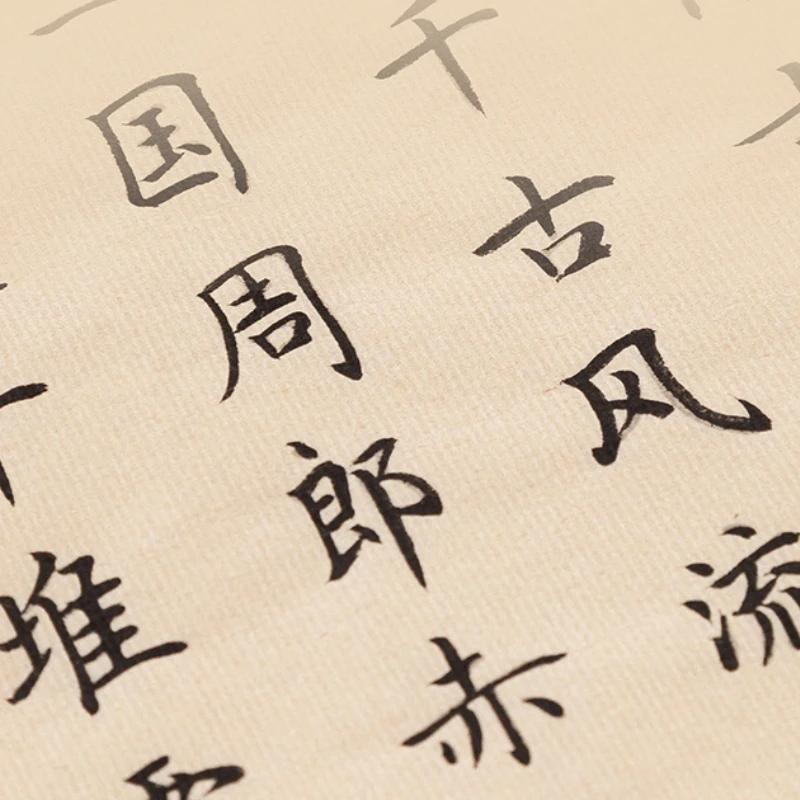 千古风流
国周郎赤
堆